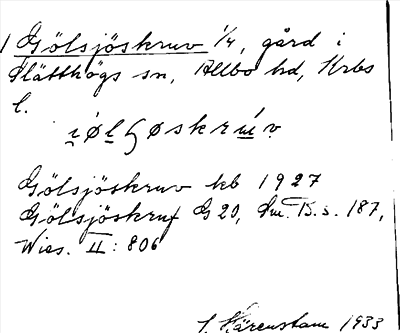 1 Gölsjöskruv 1/4, gård i
Slätthögs sn, Allbo hd, Krbs
l.
Gölsjöskruv kb 1927
Gölsjöskruf G 20, Sm. B. s. 187,
Wies. II: 806
J. Härenstam 1933